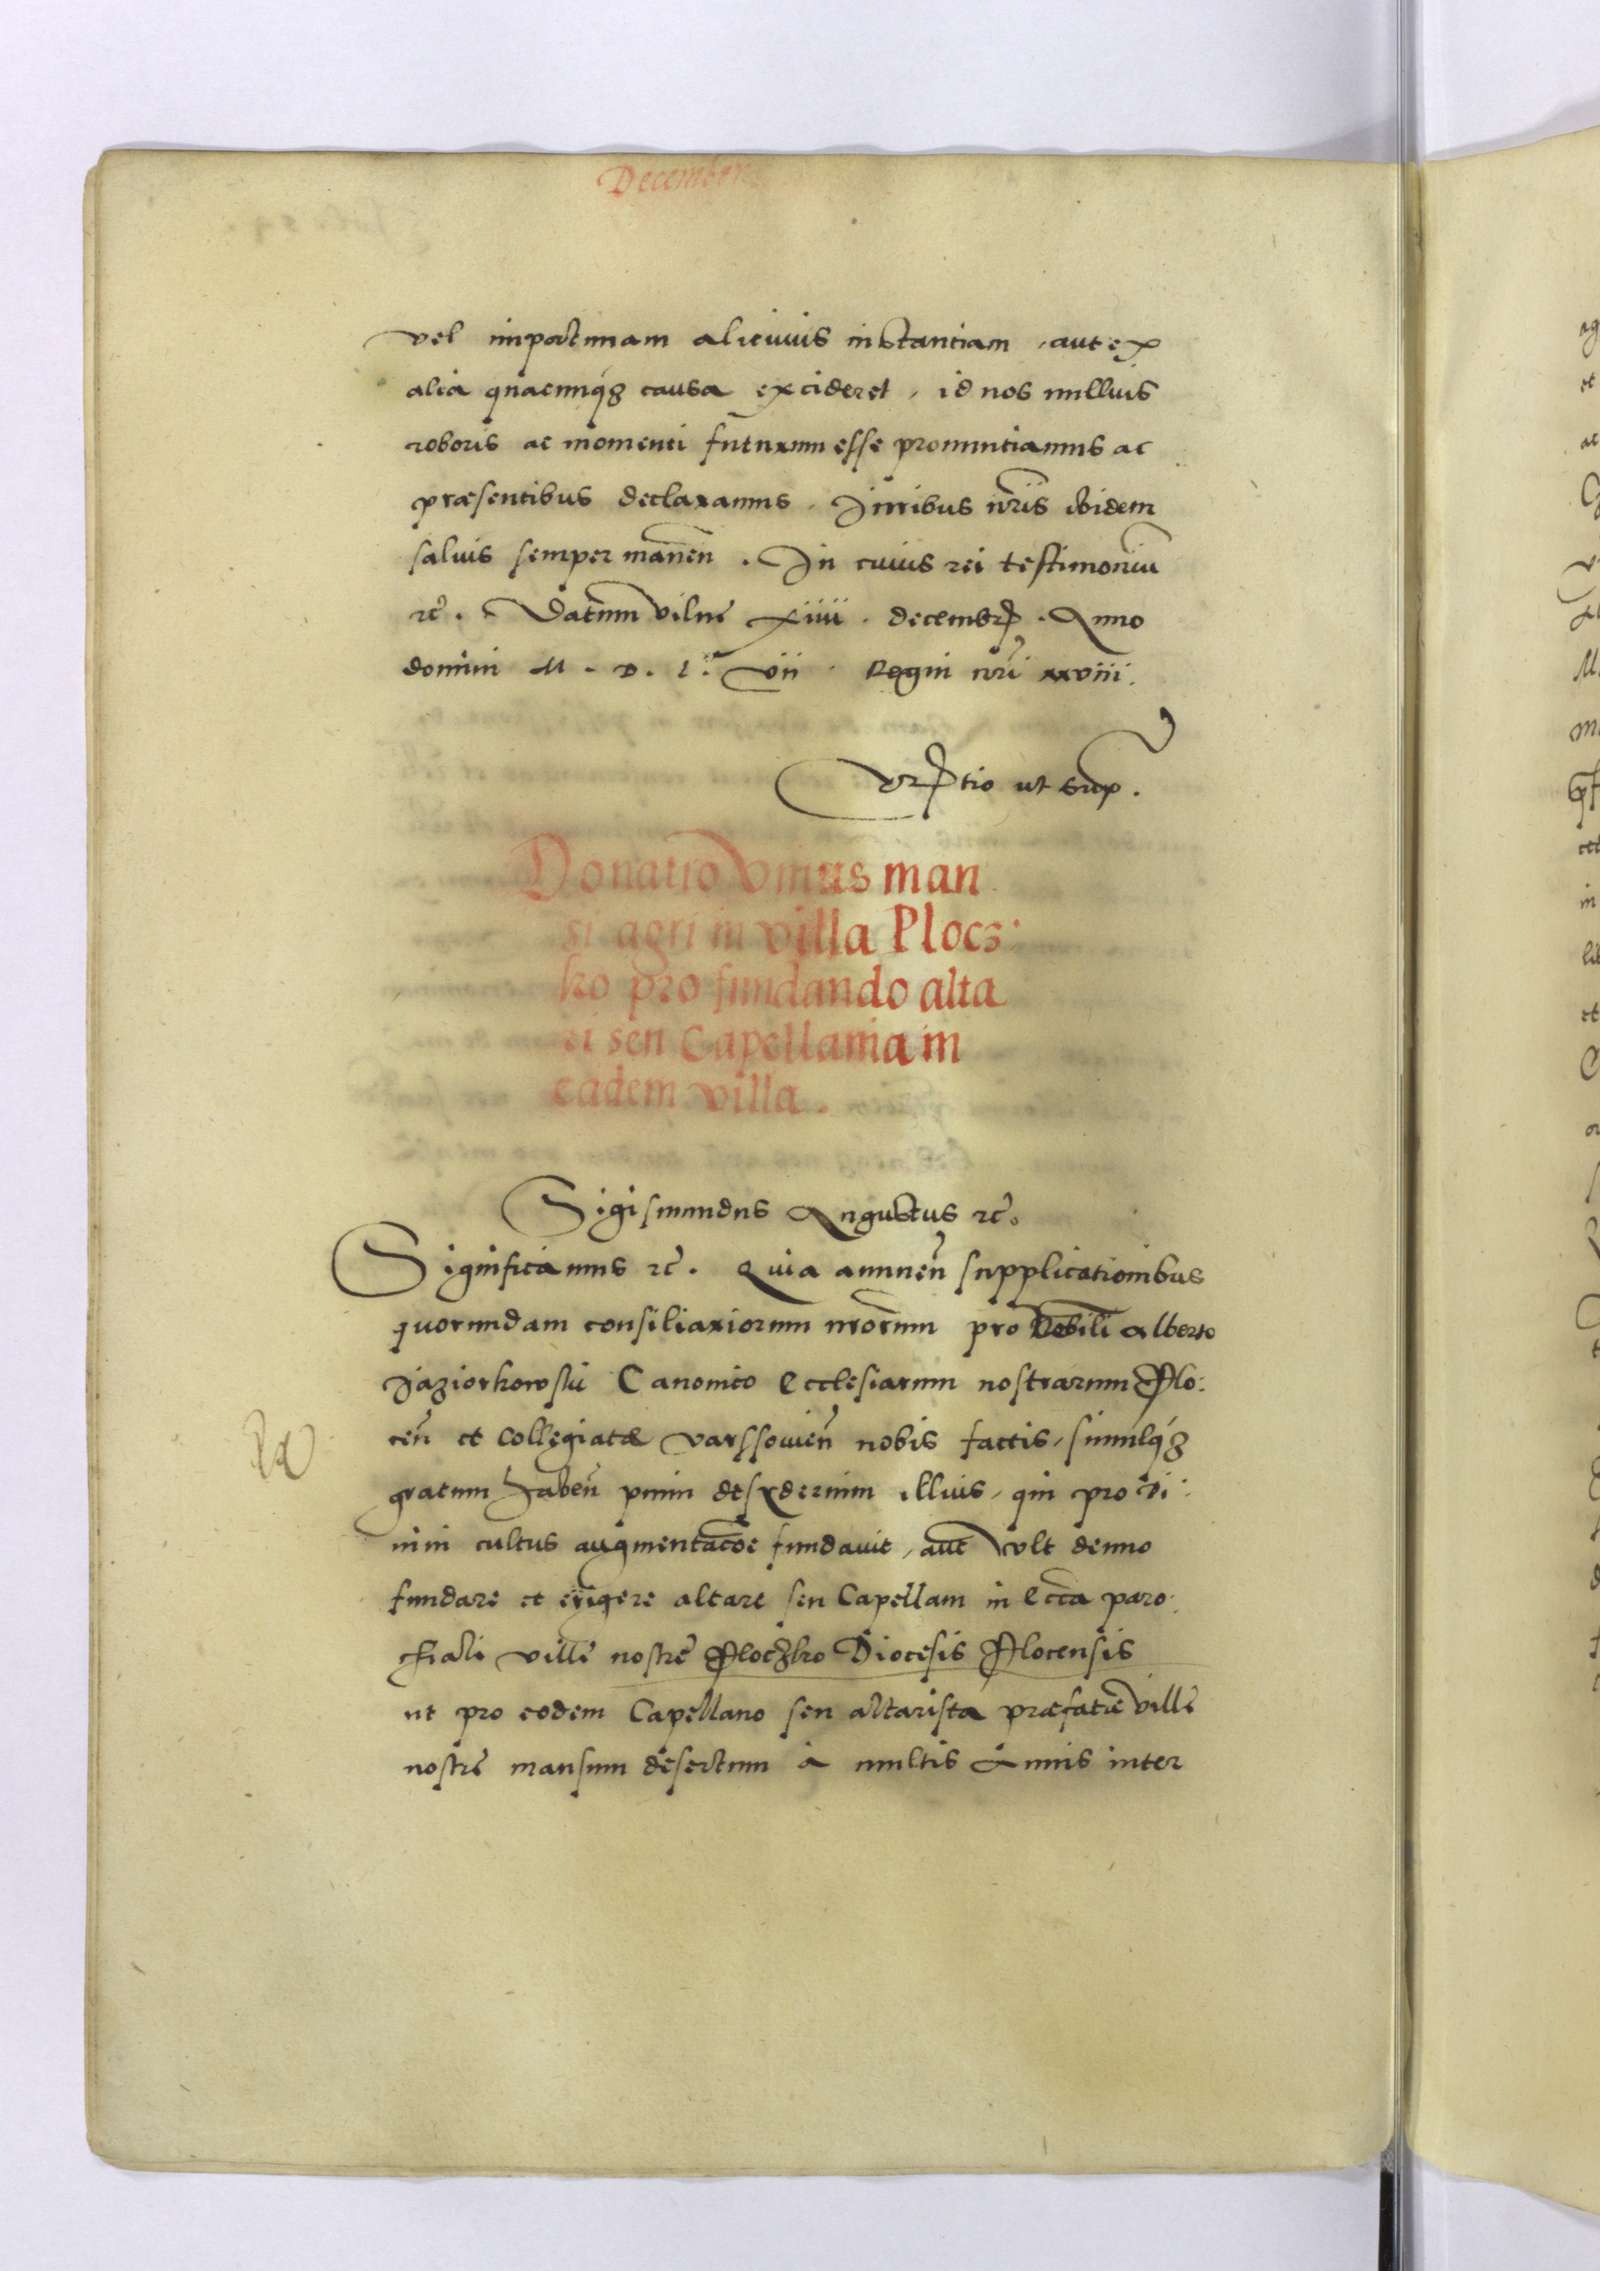 December
vel importunam alicuius instantiam, aut ex
alia quacunq́ꝫ causa excideret, id nos nullius
roboris ac momenti futurum esse pronuntiamus ac
præsentibus declaramus. Iuribus nr̃is ibidem
saluis semper maneñ. In cuius rei testimoniũ
ꝛc̃. Datum Vilnę xiiii. decembr̃. Anno
domini M. D. L. vii Regni nr̃i xxviii.
ut supr.
Donatio vnius man
si agri in villa Plocz
ko pro fundando alta
ri seu Capellania in
eadem villa.
Sigismundus Augustus ꝛc̃.
Significamus ꝛc̃. Quia annueñ supplicationibus
quorundam consiliariorum nrõrum pro Nobili Alberto
Jaziorkowski Canonico Ecclesiarum nostrarum Plo:
ceñ et Collegiatæ varssouieñ nobis factis, simulq́ꝫ
gratum habeñ pium desyderium illius, qui pro di:
uini cultus augmentacõe fundauit, aut vult denuo
fundare et erigere altare seu Capellam in Ecc̃a paro:
chiali villę nostrę Ploczko Diocesis Plocensis
ut pro eodem Capellano seu altarista præfatæ villę
nostrę mansum desertum à multis Annis inter